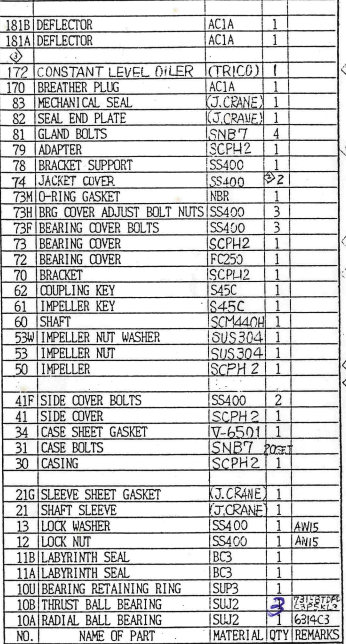 181B DEFLECTOR AC1A 1
181A DEFLECTOR AC1A 1
3
172 CONSTANT LEVEL OILER (TRICO) 1
170 BREATHER PLUG AC1A 1
83 MECHANICAL SEAL (J.CRANE) 1
82 SEAL END PLATE (J.CRANE) 1
81 GLAND BOLTS SNB7 4
79 ADAPTER SCPH2 1
78 BRACKET SUPPORT SS400 1
74 JACKET COVER SS400 2
73M O-RING GASKET NBR 1
73H BRG COVER ADJUST BOLT NUTS SS400 3
73F BEARING COVER BOLTS SS400 3
73 BEARING COVER SCPH2 1
72 BEARING COVER FC250 1
70 BRACKET SCPH2 1
62 COUPLING KEY S45C 1
61 IMPELLER KEY S45C 1
60 SHAFT SCM440H 1
53W IMPELLER NUT WASHER SUS304 1
53 IMPELLER NUT SUS304 1
50 IMPELLER SCPH2 1
41F SIDE COVER BOLTS SS400 2
41 SIDE COVER SCPH2 1
34 CASE SHEET GASKET V-6501 1
31 CASE BOLTS SNB7 20SET
30 CASING SCPH2 1
21G SLEEVE SHEET GASKET (J.CRANE) 1
21 SHAFT SLEEVE (J.CRANE) 1
13 LOCK WASHER SS400 1 AW15
12 LOCK NUT SS400 1 AN15
11B LABYRINTH SEAL BC3 1
11A LABYRINTH SEAL BC3 1
10U BEARING RETAINING RING SUP3 1
10B THRUST BALL BEARING SUJ2
10A RADIAL BALL BEARING SUJ2 1 6314C3
NO. NAME OF PART MATERIAL QTY REMARKS